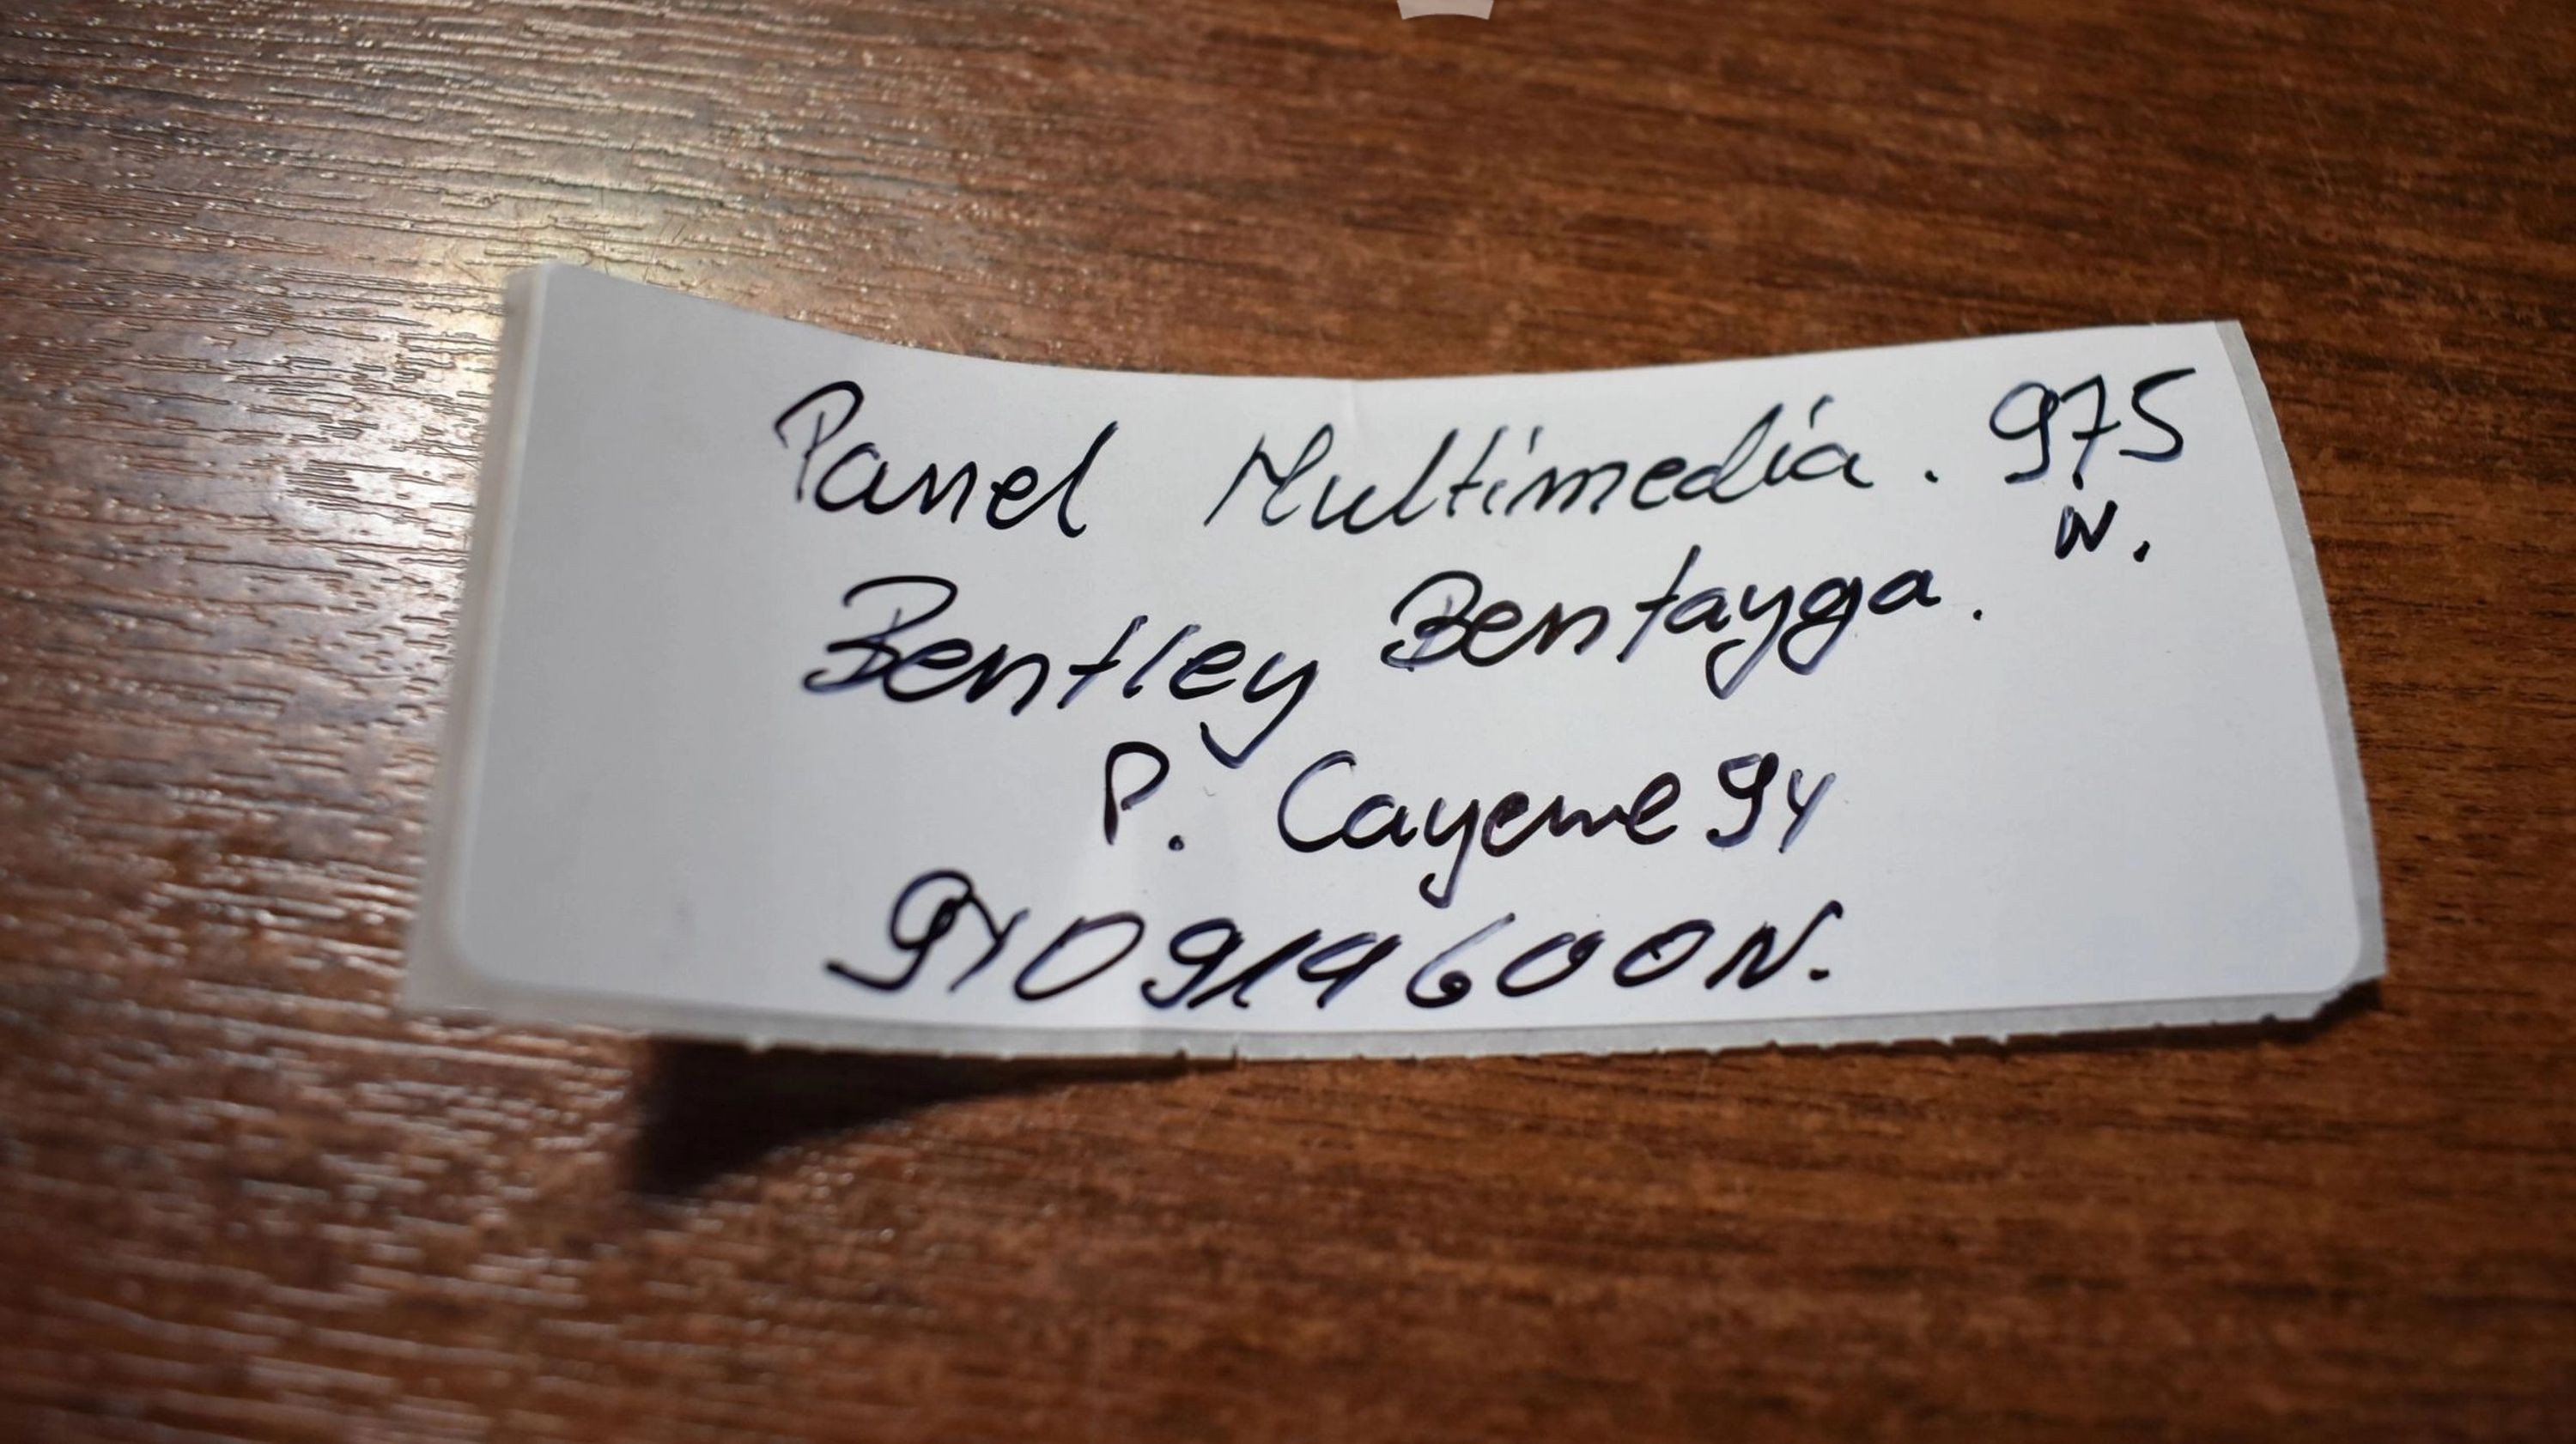 Panel Multimedia. 975
N.
Bentley Bentayga.
P. Cayenne 9Y
9Y0919600N.